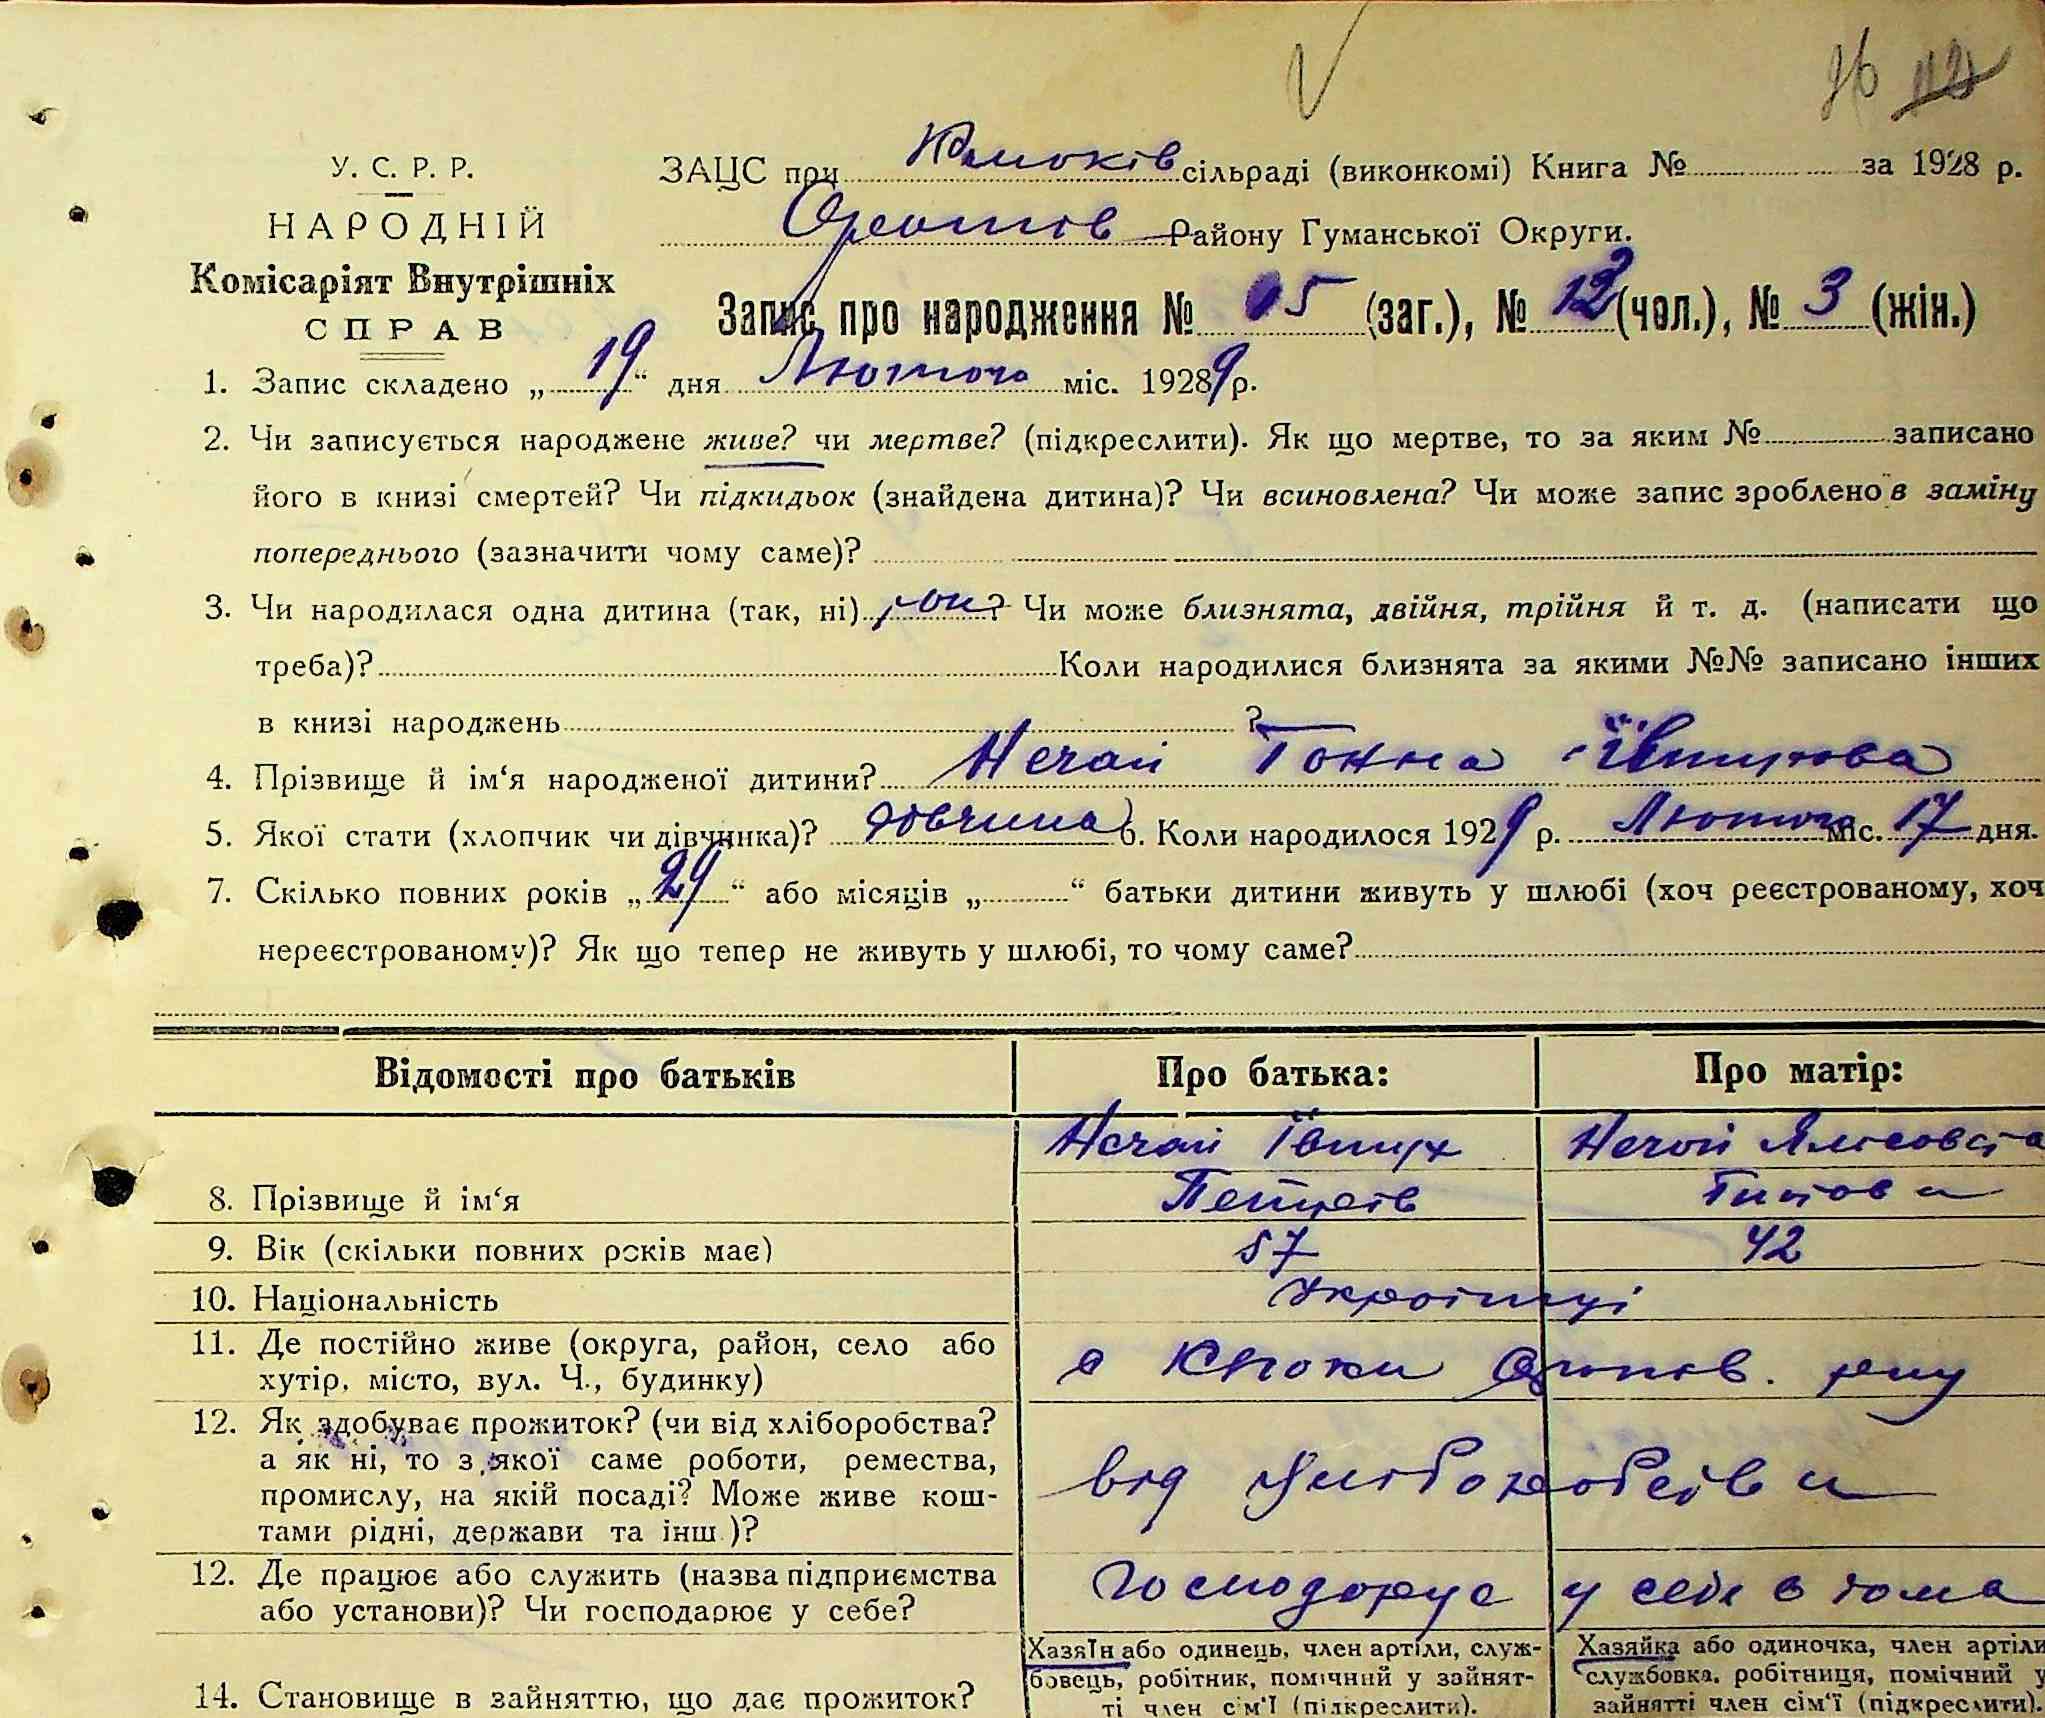 96
У. С. Р. Р.
НАРОДНІЙ
Комісаріят Внутрішніх
СПРАВ
ЗАЦС при Клюків сільраді (виконкомі) Книга № за 1928 р.
Оратів Району Гуманської Округи.
Запис про народження № 15 (заг.), № 12 (чол.), № 3 (жін.)
1. Запис складено „19“ дня Лютого міс. 19289 р.
2. Чи записується народжене живе? чи мертве? (підкреслити). Як що мертве, то за яким № записано
його в книзі смертей? Чи підкидьок (знайдена дитина)? Чи всиновлена? Чи може запис зроблено в заміну
попереднього (зазначити чому саме)?
3. Чи народилася одна дитина (так, ні) ? Чи може близнята, двійня, трійня й т. д. (написати що
треба)? Коли народилися близнята за якими №№ записано інших
в книзі народжень ?
4. Прізвище й ім‘я народженої дитини? Нечай Ганна Ївтухова
5. Якої стати (хлопчик чи дівчинка)? дівчина 6. Коли народилося 1929 р. Лютого міс. 17 дня.
7. Скілько повних років „24“ або місяців „ “ батьки дитини живуть у шлюбі (хоч реєстрованому, хоч
нереєстрованому)? Як що тепер не живуть у шлюбі, то чому саме?
Відомості про батьків Про батька: Про матір:
8. Прізвище й ім‘я Нечай Ївтух Петрів Нечай Ялисовета Титова
9. Вік (скільки повних років має) 57 42
10. Національність Українці
11. Де постійно живе (округа, район, село або
хутір, місто, вул. Ч., будинку) с Клюки Оратів. р-ну
12. Як здобуває прожиток? (чи від хліборобства?
а як ні, то з якої саме роботи, ремества,
промислу, на якій посаді? Може живе кош-
тами рідні, держави та інш.)? від хліборобства
12. Де працює або служить (назва підприємства
або установи)? Чи господарює у себе? Господарує у себе дома
14. Становище в зайняттю, що дає прожиток?
Хазяїн або одинець, член артіли, служ-
бовець, робітник, помічний у зайнят-
ті член сім‘ї (підкреслити).
Хазяйка або одиночка, член артіли
службовка, робітниця, помічний у
зайнятті член сім‘ї (підкреслити).